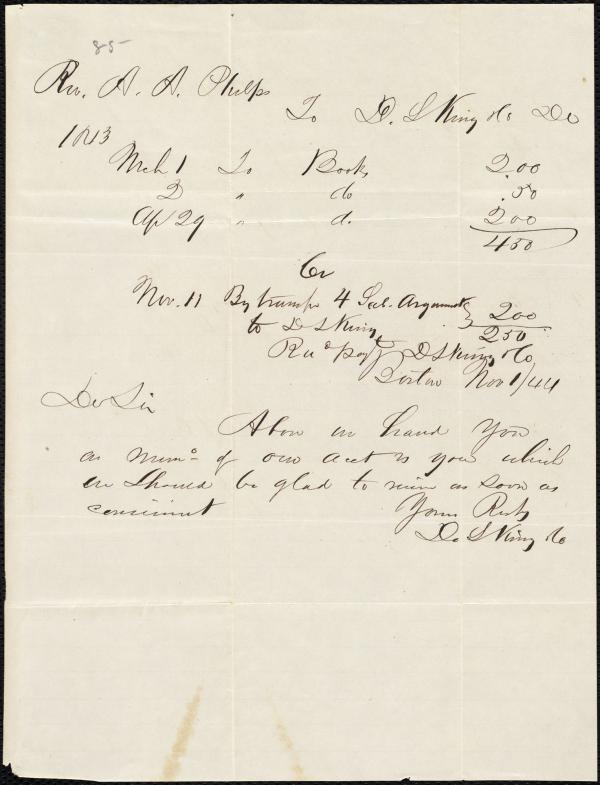 85-
Rev. A. A. Phelps
To D. S King & Co Dr
1843
Mch 1 To Books 2.00
2 " do .50
Ap 29 " do. 2.00
4 50
Cr
Nov. 11 By 4 Sab. Argument 2.00
to D S King 2 50
Rec'd Pay D S King & Co
Boston Nov 1/44
Dr Sir
Above we hand you
a Memo of our acct vs you which
we should be glad to receive as soon as
convenient Yours Rectf
D. S King & Co